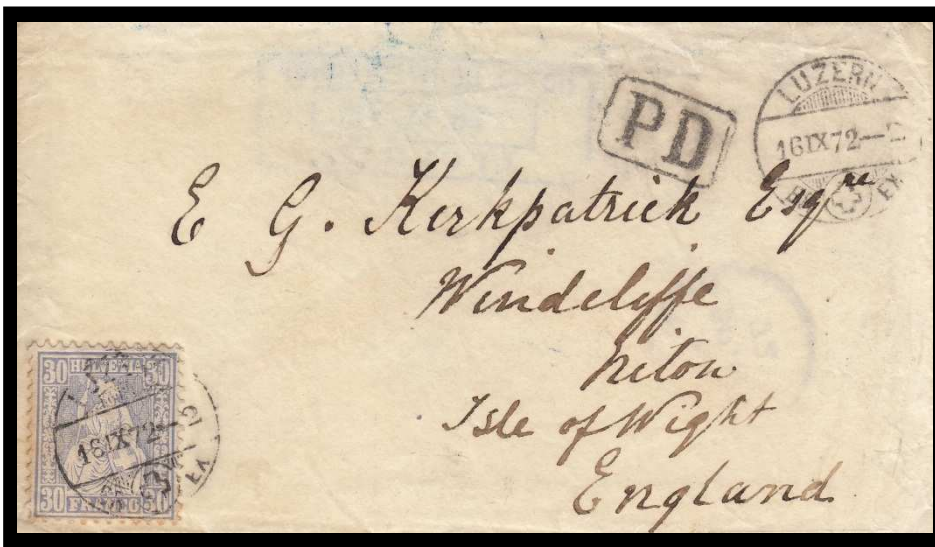 LUZERN
16 IX 72
EX
PD
E G. Kirkpatrick Esqre
Windcliffe
Niton
Isle of Wight
England
30 HELVETIA 30
16 IX 72
EX
30 FRANCO 30